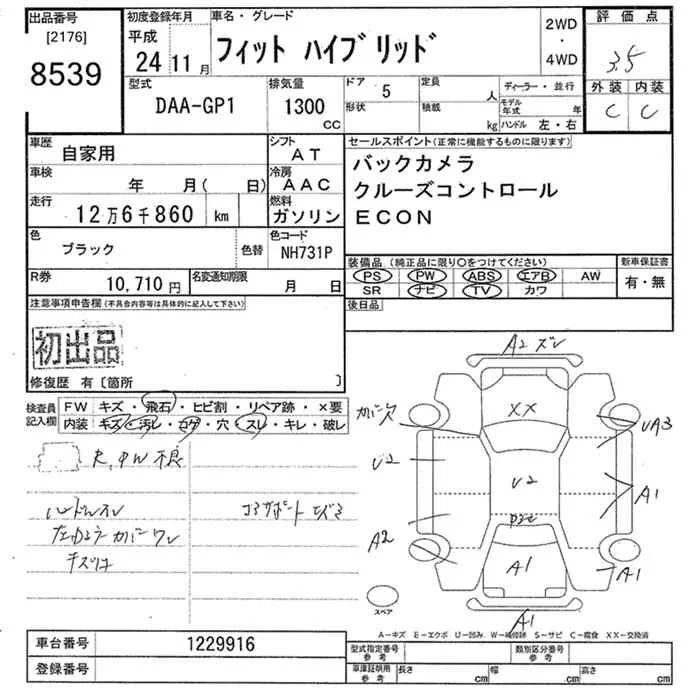 出品番号
[2176]
8539
初度登録年月
平成
24 11月
車名・グレード
フィット ハイブリッド
2WD
・
4WD
評価点
3.5
外装 内装
C C
型式
DAA-GP1
排気量
1300
CC
ドア 5
形状
定員 人
積載 kg
ディーラー・並行
モデル年式 年
ハンドル 左・右
車歴
自家用
シフト
AT
車検
年 月( 日)
冷房
AAC
走行
12万6千860 km
燃料
ガソリン
色
ブラック
色替
色コード
NH731P
R券
10,710円
名変通知期限
月 日
セールスポイント(正常に機能するものに限ります)
バックカメラ
クルーズコントロール
ECON
装備品(純正品に限り○をつけてください)
PS PW ABS エアB AW
SR ナビ TV カワ
新車保証書
有・無
後日品
注意事項申告欄(不具合内容等は具体的に記入して下さい)
初出品
修復歴 有〔箇所 〕
検査員記入欄
FW キズ・飛石・ヒビ割・リペア跡・×要
内装 キズ・汚レ・コゲ・穴・スレ・キレ・破レ
PW不良
ハンドルスレ
キズ
A2 ズレ
XX
カバー欠
UA3
U2
U2
A1
A2
A1
A1
A1
スペア
A-キズ E-エクボ U-凹み W-補修跡 S-サビ C-腐食 XX-交換済
車台番号
1229916
登録番号
型式指定番号
参考
類別区分番号
参考
車庫証明用
参考
長さ cm
幅 cm
高さ cm